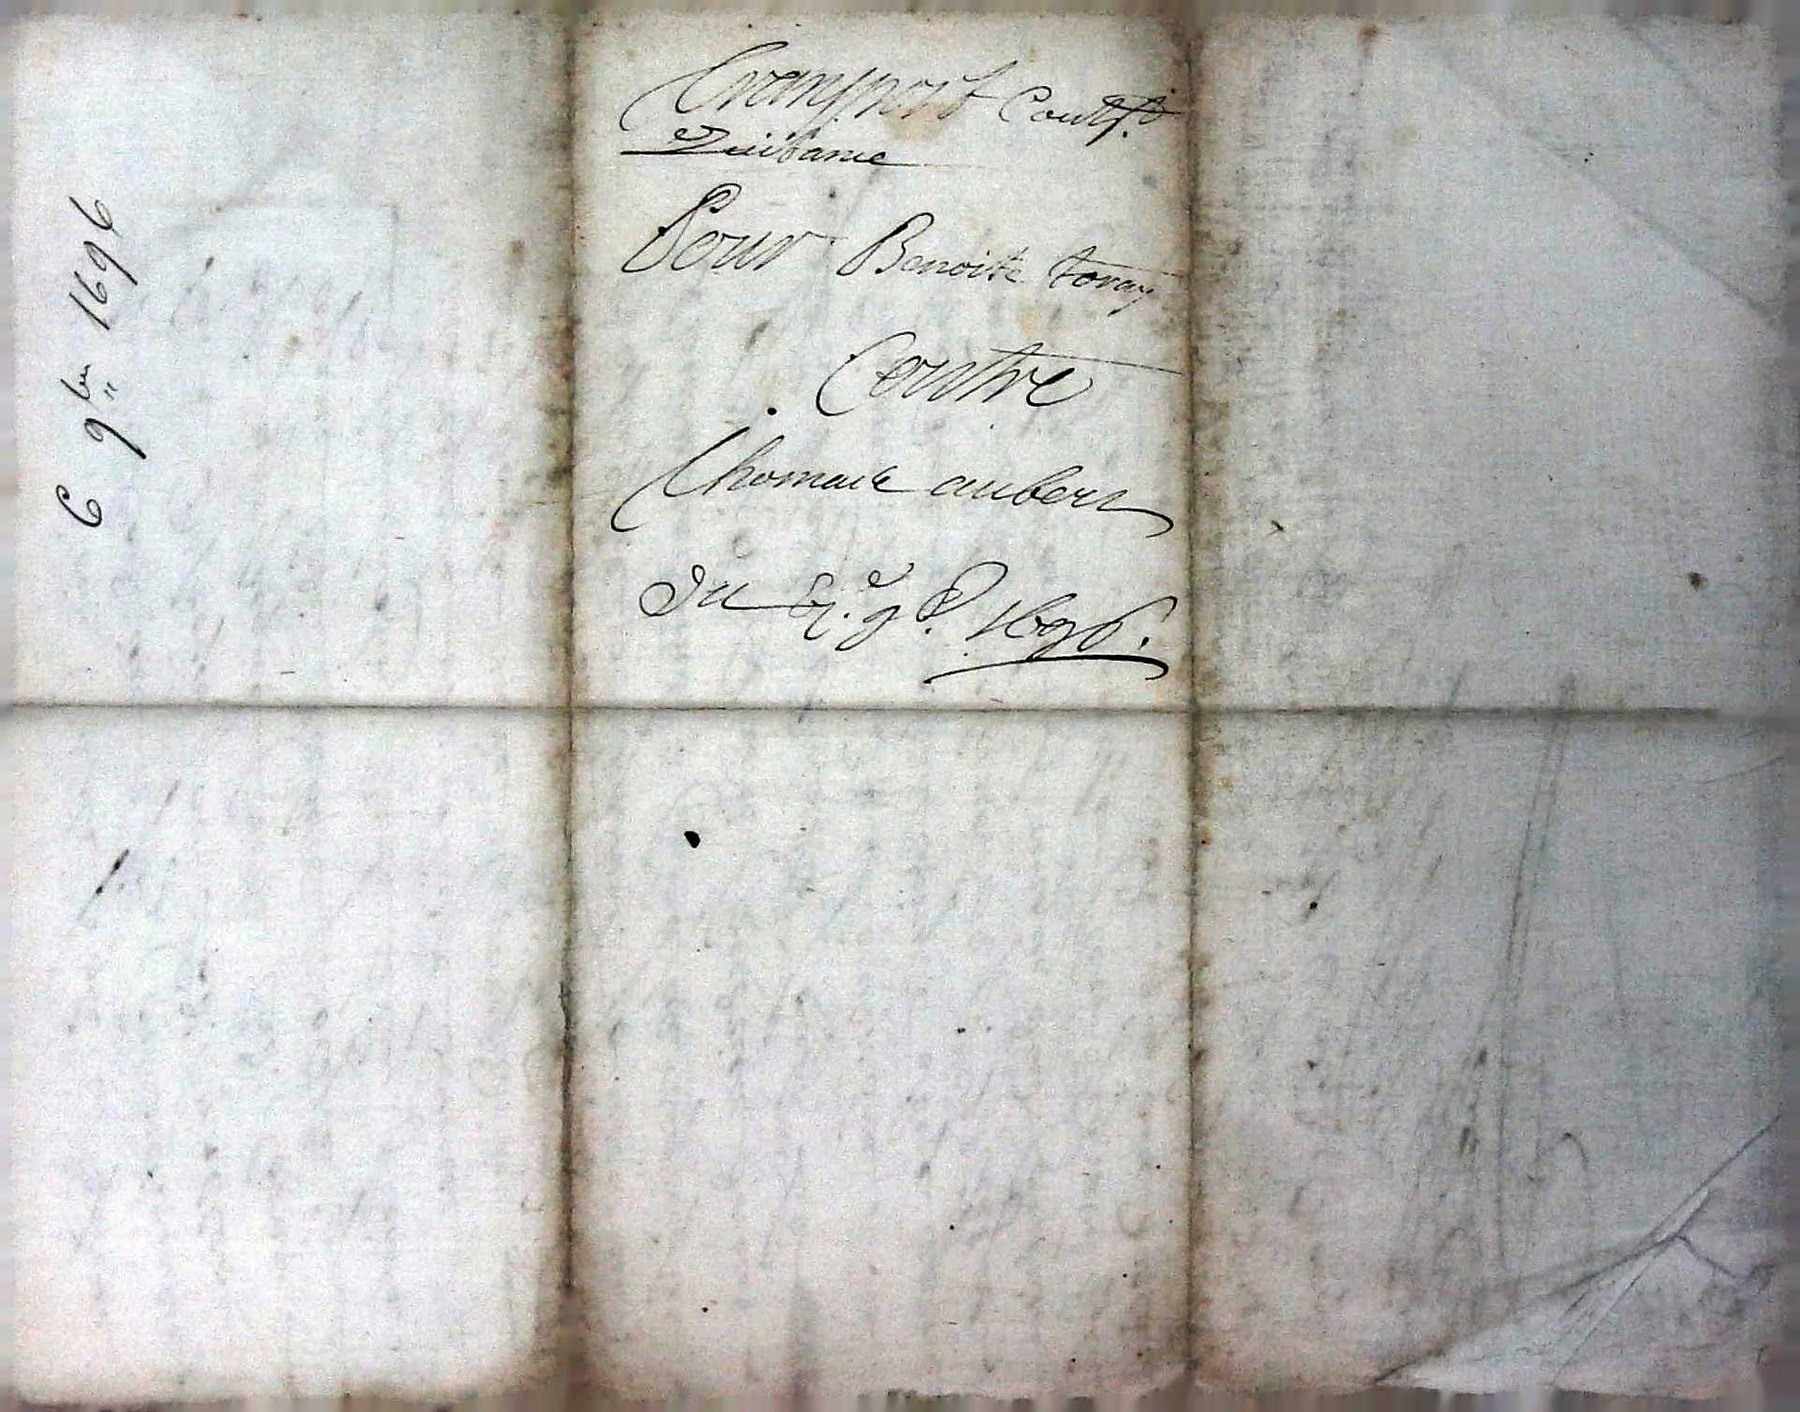 6 9bre 1696
Transport Cont.t
Quittance
Pour Benoiste toray
Contre
Thomas aubert
Du 9.e 1696.